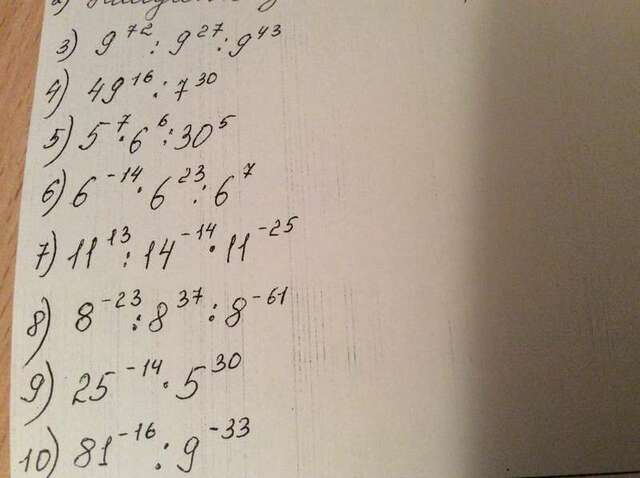 2)
3) 9⁷² : 9²⁷ : 9⁴³
4) 49¹⁶ : 7³⁰
5) 5⁷ · 6⁶ : 30⁵
6) 6⁻¹⁴ · 6²³ : 6⁷
7) 11¹³ : 14⁻¹⁴ · 11⁻²⁵
8) 8⁻²³ : 8³⁷ : 8⁻⁶¹
9) 25⁻¹⁴ · 5³⁰
10) 81⁻¹⁶ : 9⁻³³